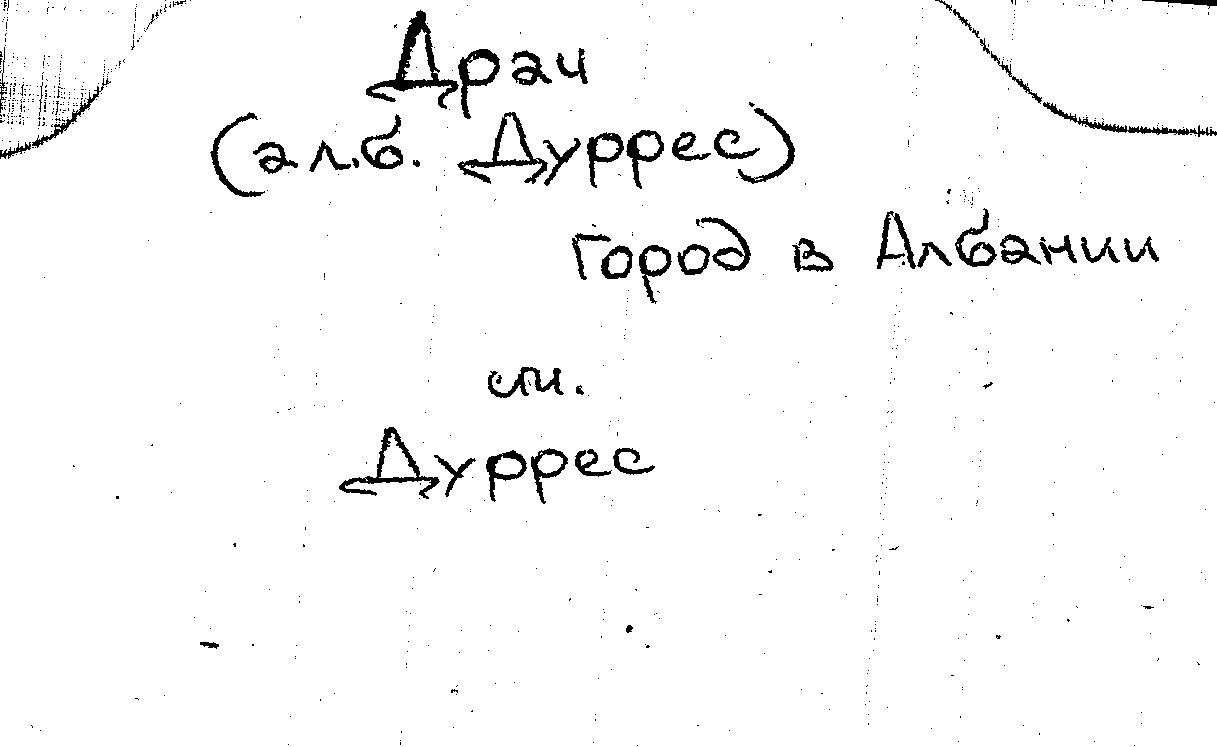 Драч
(алб. Дуррес)
город в Албании
см.
Дуррес